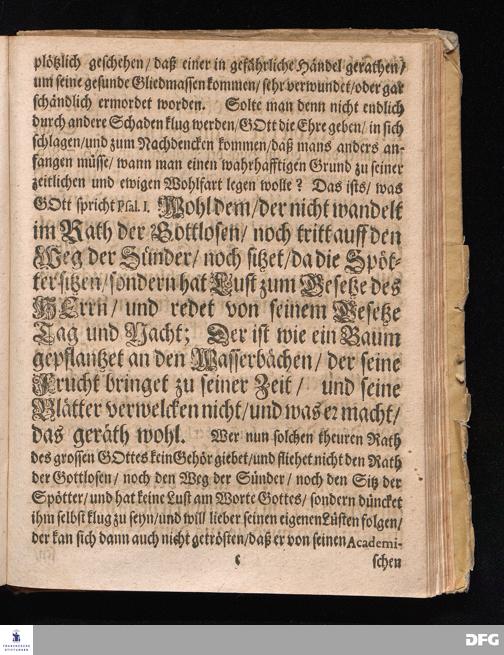 plötzlich geschehen/ daß einer in gefährliche Händel gerathen/
um seine gesunde Gliedmassen kommen/ sehr verwundet/oder gar
schändlich ermordet worden. Solte man denn nicht endlich
durch andere Schaden klug werden/ GOtt die Ehre geben/ in sich
schlagen/und zum Nachdencken kommen/daß mans anders an-
fangen müsse/ wann man einen wahrhafftigen Grund zu seiner
zeitlichen und ewigen Wohlfart legen wolle? Das ists/ was
GOtt spricht Psal. I. Wohl dem/der nicht wandelt
im Rath der Gottlosen/ noch tritt auff den
Weg der Sünder/ noch sitzet/da die Spöt-
ter sitzen/sondern hat Lust zum Gesetze des
HErrn/ und redet von seinem Gesetze
Tag und Nacht; Der ist wie ein Baum
gepflantzet an den Wasserbächen/ der seine
Frucht bringet zu seiner Zeit/ und seine
Blätter verwelcken nicht/und was er macht/
das geräth wohl. Wer nun solchen theuren Rath
des grossen GOttes kein Gehör giebet/und fliehet nicht den Rath
der Gottlosen/ noch den Weg der Sünder/ noch den Sitz der
Spötter/und hat keine Lust am Worte Gottes/ sondern düncket
ihm selbst klug zu seyn/und will lieber seinen eigenen Lüsten folgen/
der kan sich dann auch nicht getrösten/daß er von seinen Academi-
c schen
FRANCKESCHE
STIFTUNGEN
DFG